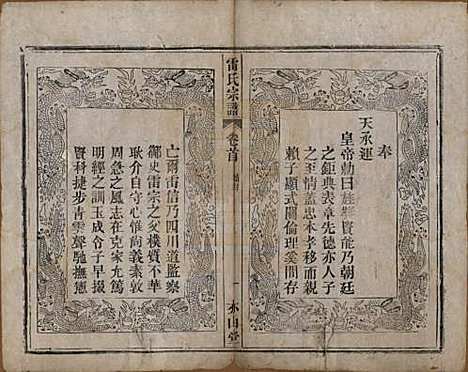 奉
天承運
皇帝勅曰旌賢能乃朝廷
之鉅典表章先德亦人子
之至情蓋忠本孝移而親
賴子顯式團倫理奚間存
雷氏宗譜
卷首
一
亡爾雷信乃四川道監察
御史雷宗之父樸質不華
耿介自守心惟尚義素敦
周急之風志在克家允篤
明經之訓玉成令子早掇
賢科捷步青雲聲馳撫憲